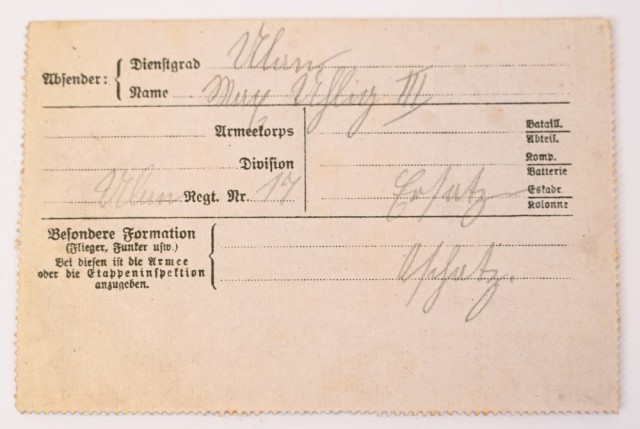 Absender: { Dienstgrad Ulan
Name Max Uhlig III
Armeekorps
Division
Ulan Regt. Nr. 17
Bataill.
Abteil.
Komp.
Batterie
Ersatz Eskadr.
Kolonne
Besondere Formation
(Flieger, Funker usw.)
Bei diesen ist die Armee
oder die Etappeninspektion
anzugeben.
Oschatz.